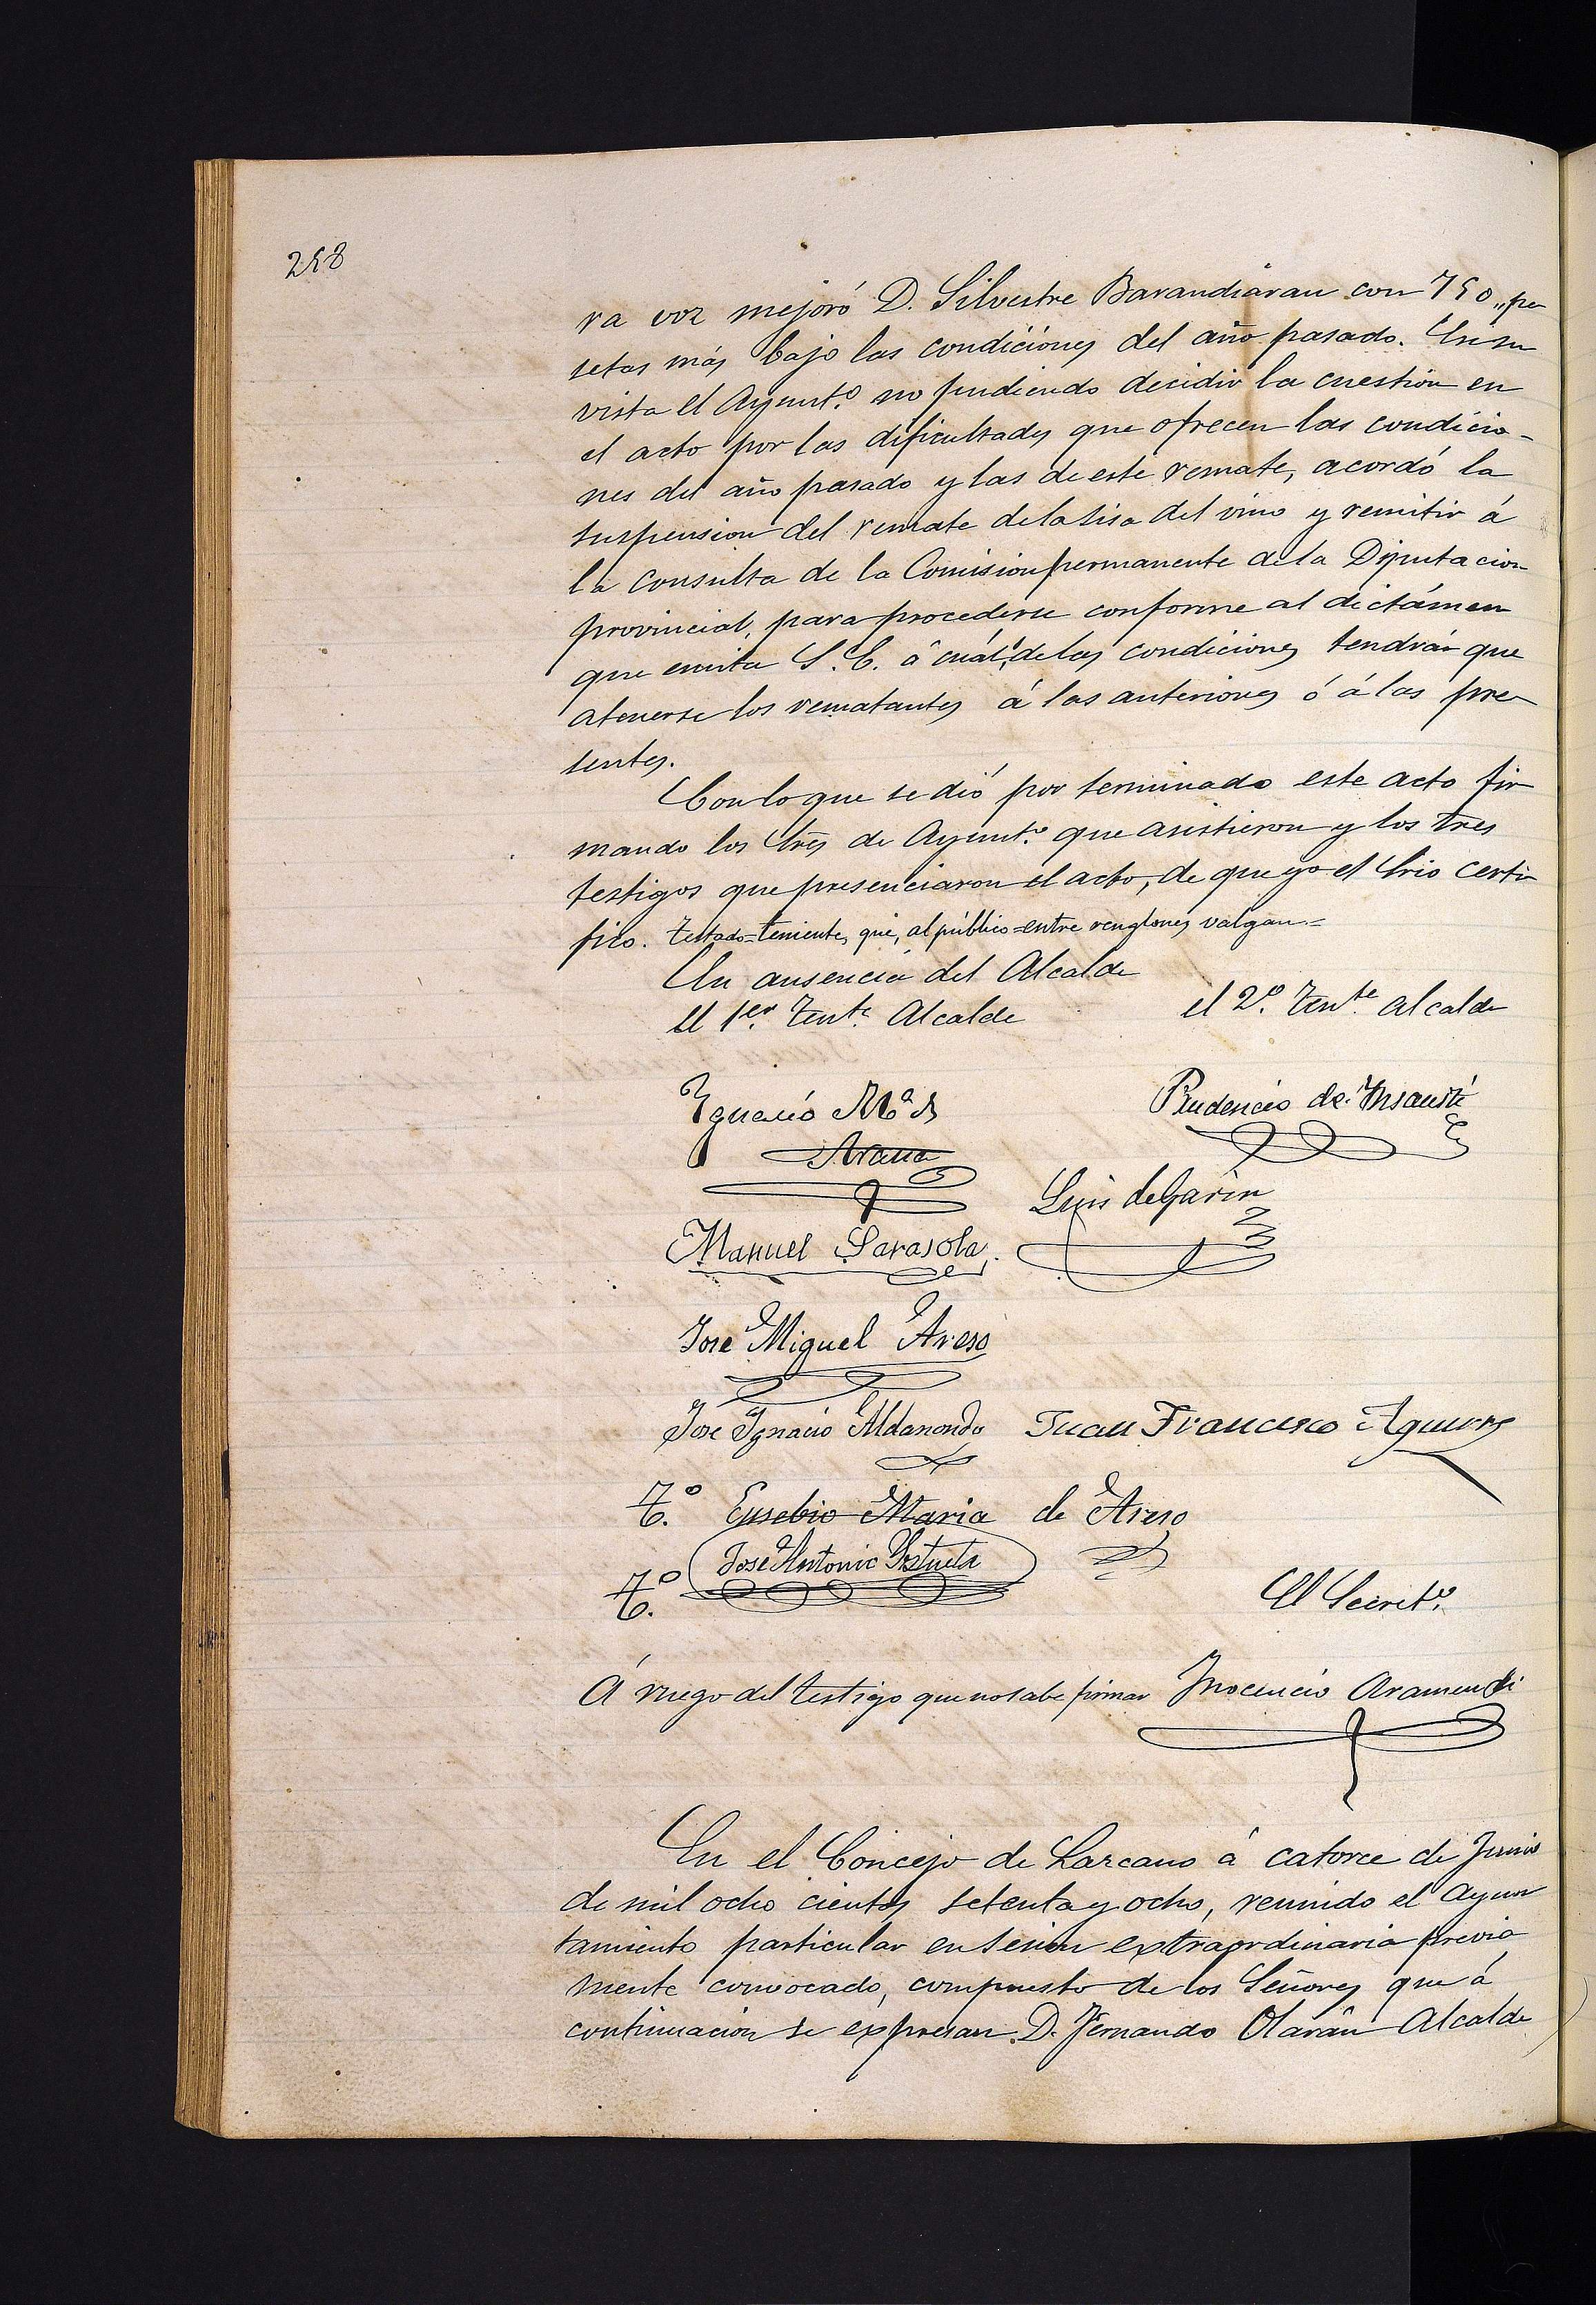 258
ra voz mejoró D. Silvestre Barandiaran con 750,, pe
setas más bajo las condiciones del año pasado. En su
vista el Ayunt.º no pudiendo decidir la cuestión en
el acto por las dificultades que ofrecen las condicio-
nes del año pasado y las de este remate, acordó la
suspension del remate de la sisa del vino y remitir á
la consulta de la Comision permanente de la Diputacion
provincial, para procederse conforme al dictámen
que emita S. E. á cuál de las condiciones tendrán que
atenerse los rematantes á las anteriores ó á las pre
sentes.
Con lo que se dió por terminado este acto fir
mando los Sres de Ayunt.º que asistieron y los tres
testigos que presenciaron el acto, de que yo el Srio certi
fico. Testado=teniente, que, al público=entre renglones valgan.=
En ausencia del Alcalde
El 1.er Tent.e Alcalde el 2.º Tent.e alcalde
Ygnacio M.ª de Prudencio de Ynsausti
Arana
Luis de Garin
Manuel Sarasola
Jose Miguel Areso
Jose Ygnacio Aldanondo Juan Francisco Aguirre
T.º Eusebio Maria de Areso
T.º Jose Antonio Ystueta
El Secret.º
Á ruego del testigo que no sabe firmar Ynocencio Aramendi
En el Concejo de Lazcano á catorce de Junio
de mil ocho cientos setenta y ocho, reunido el Ayun
tamiento particular en sesion extraordinaria previa
mente convocado, compuesto de los Señores que á
continuacion se expresan D. Fernando Olarán Alcalde